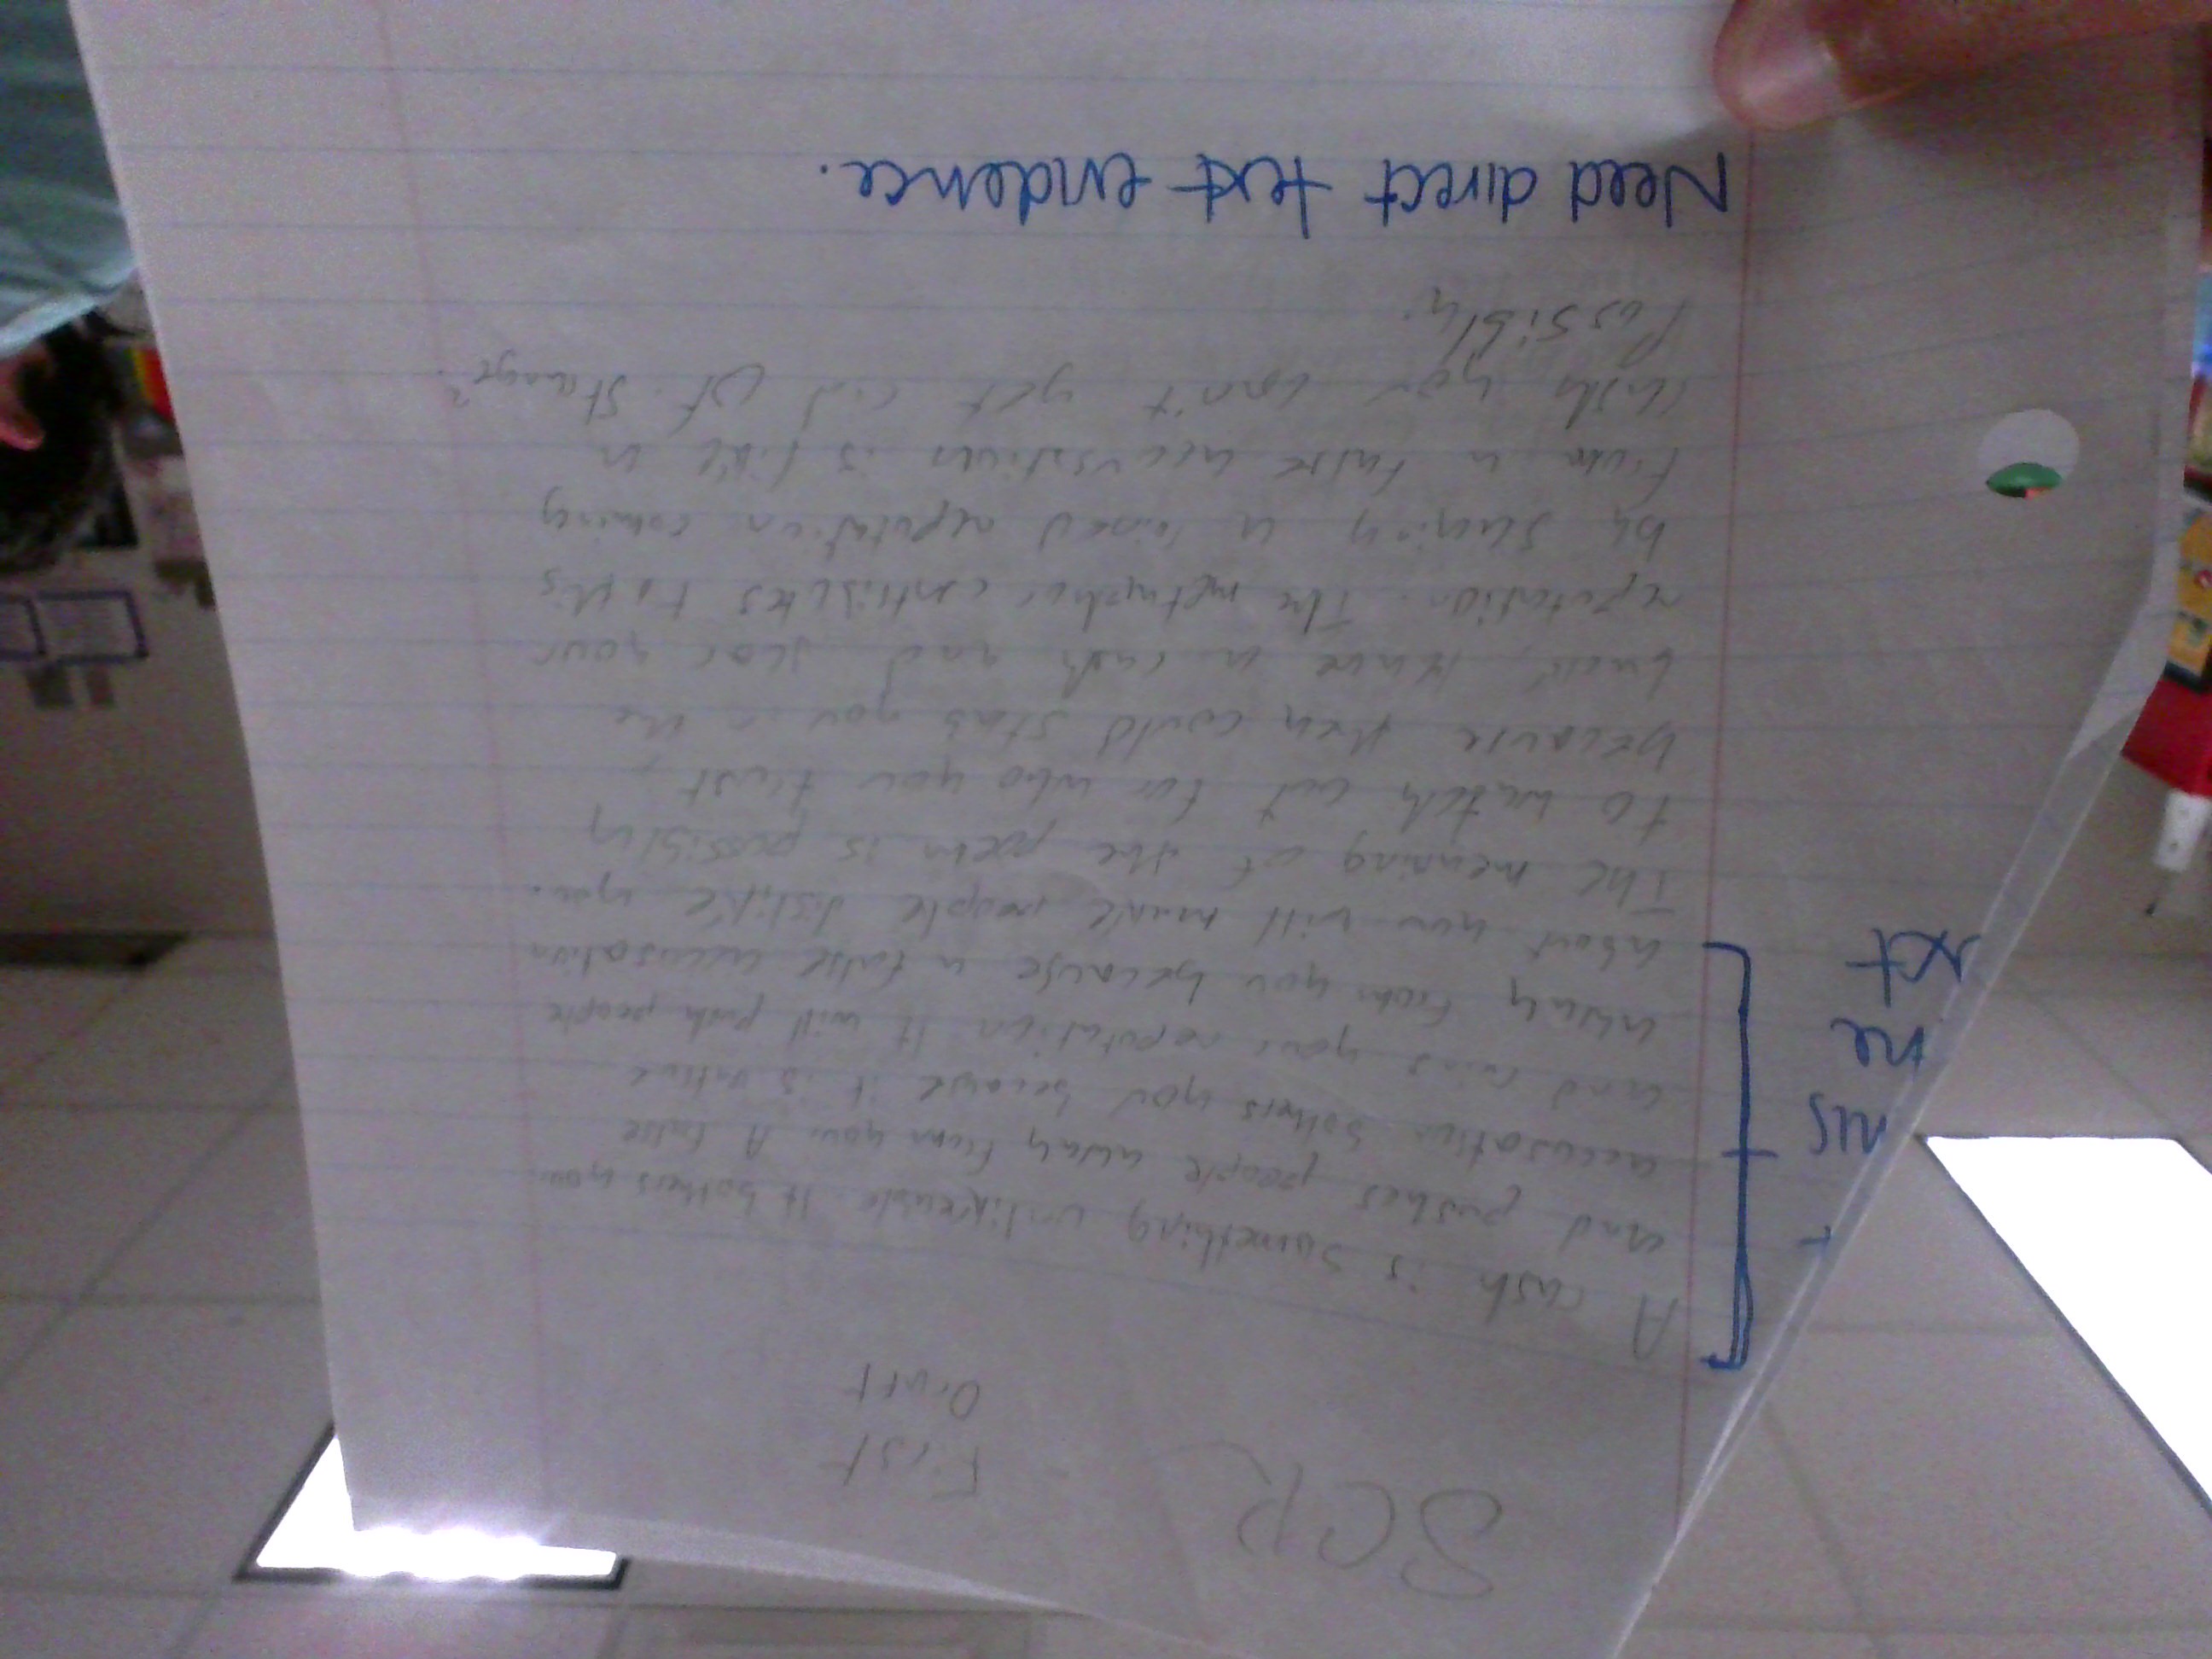 SCR
First
Draft
A rash is something unlikeable. It bothers you
and pushes people away from you. A false
accusation bothers you because it is untrue
and ruins your reputation. It will push people
away from you because a false accusation
about you will make people dislike you.
The meaning of the poem is possibly
to watch out for who you trust,
because they could stab you in the
back, leave a rash and scar your
reputation. The metaphor contributes to this
by showing a ruined reputation coming
from a false accusation is like a
rash you can't get rid of. Strange?
Possibly.
Need direct text evidence.
xt
he